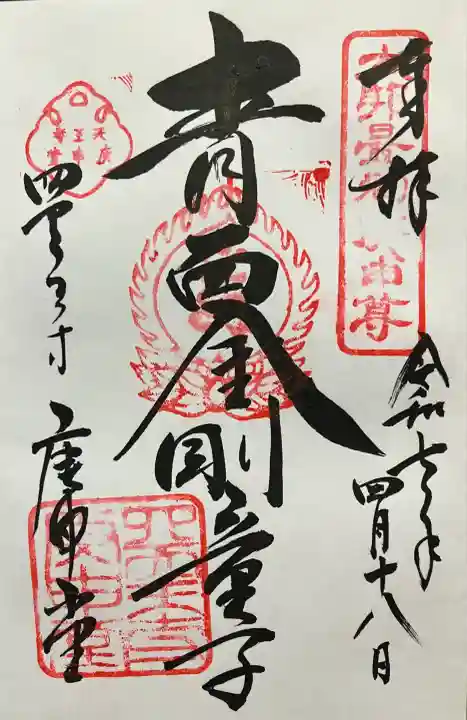 奉拝
本邦最初庚申尊
令和七年四月十八日
青面金剛童子
四天王寺
庚申堂